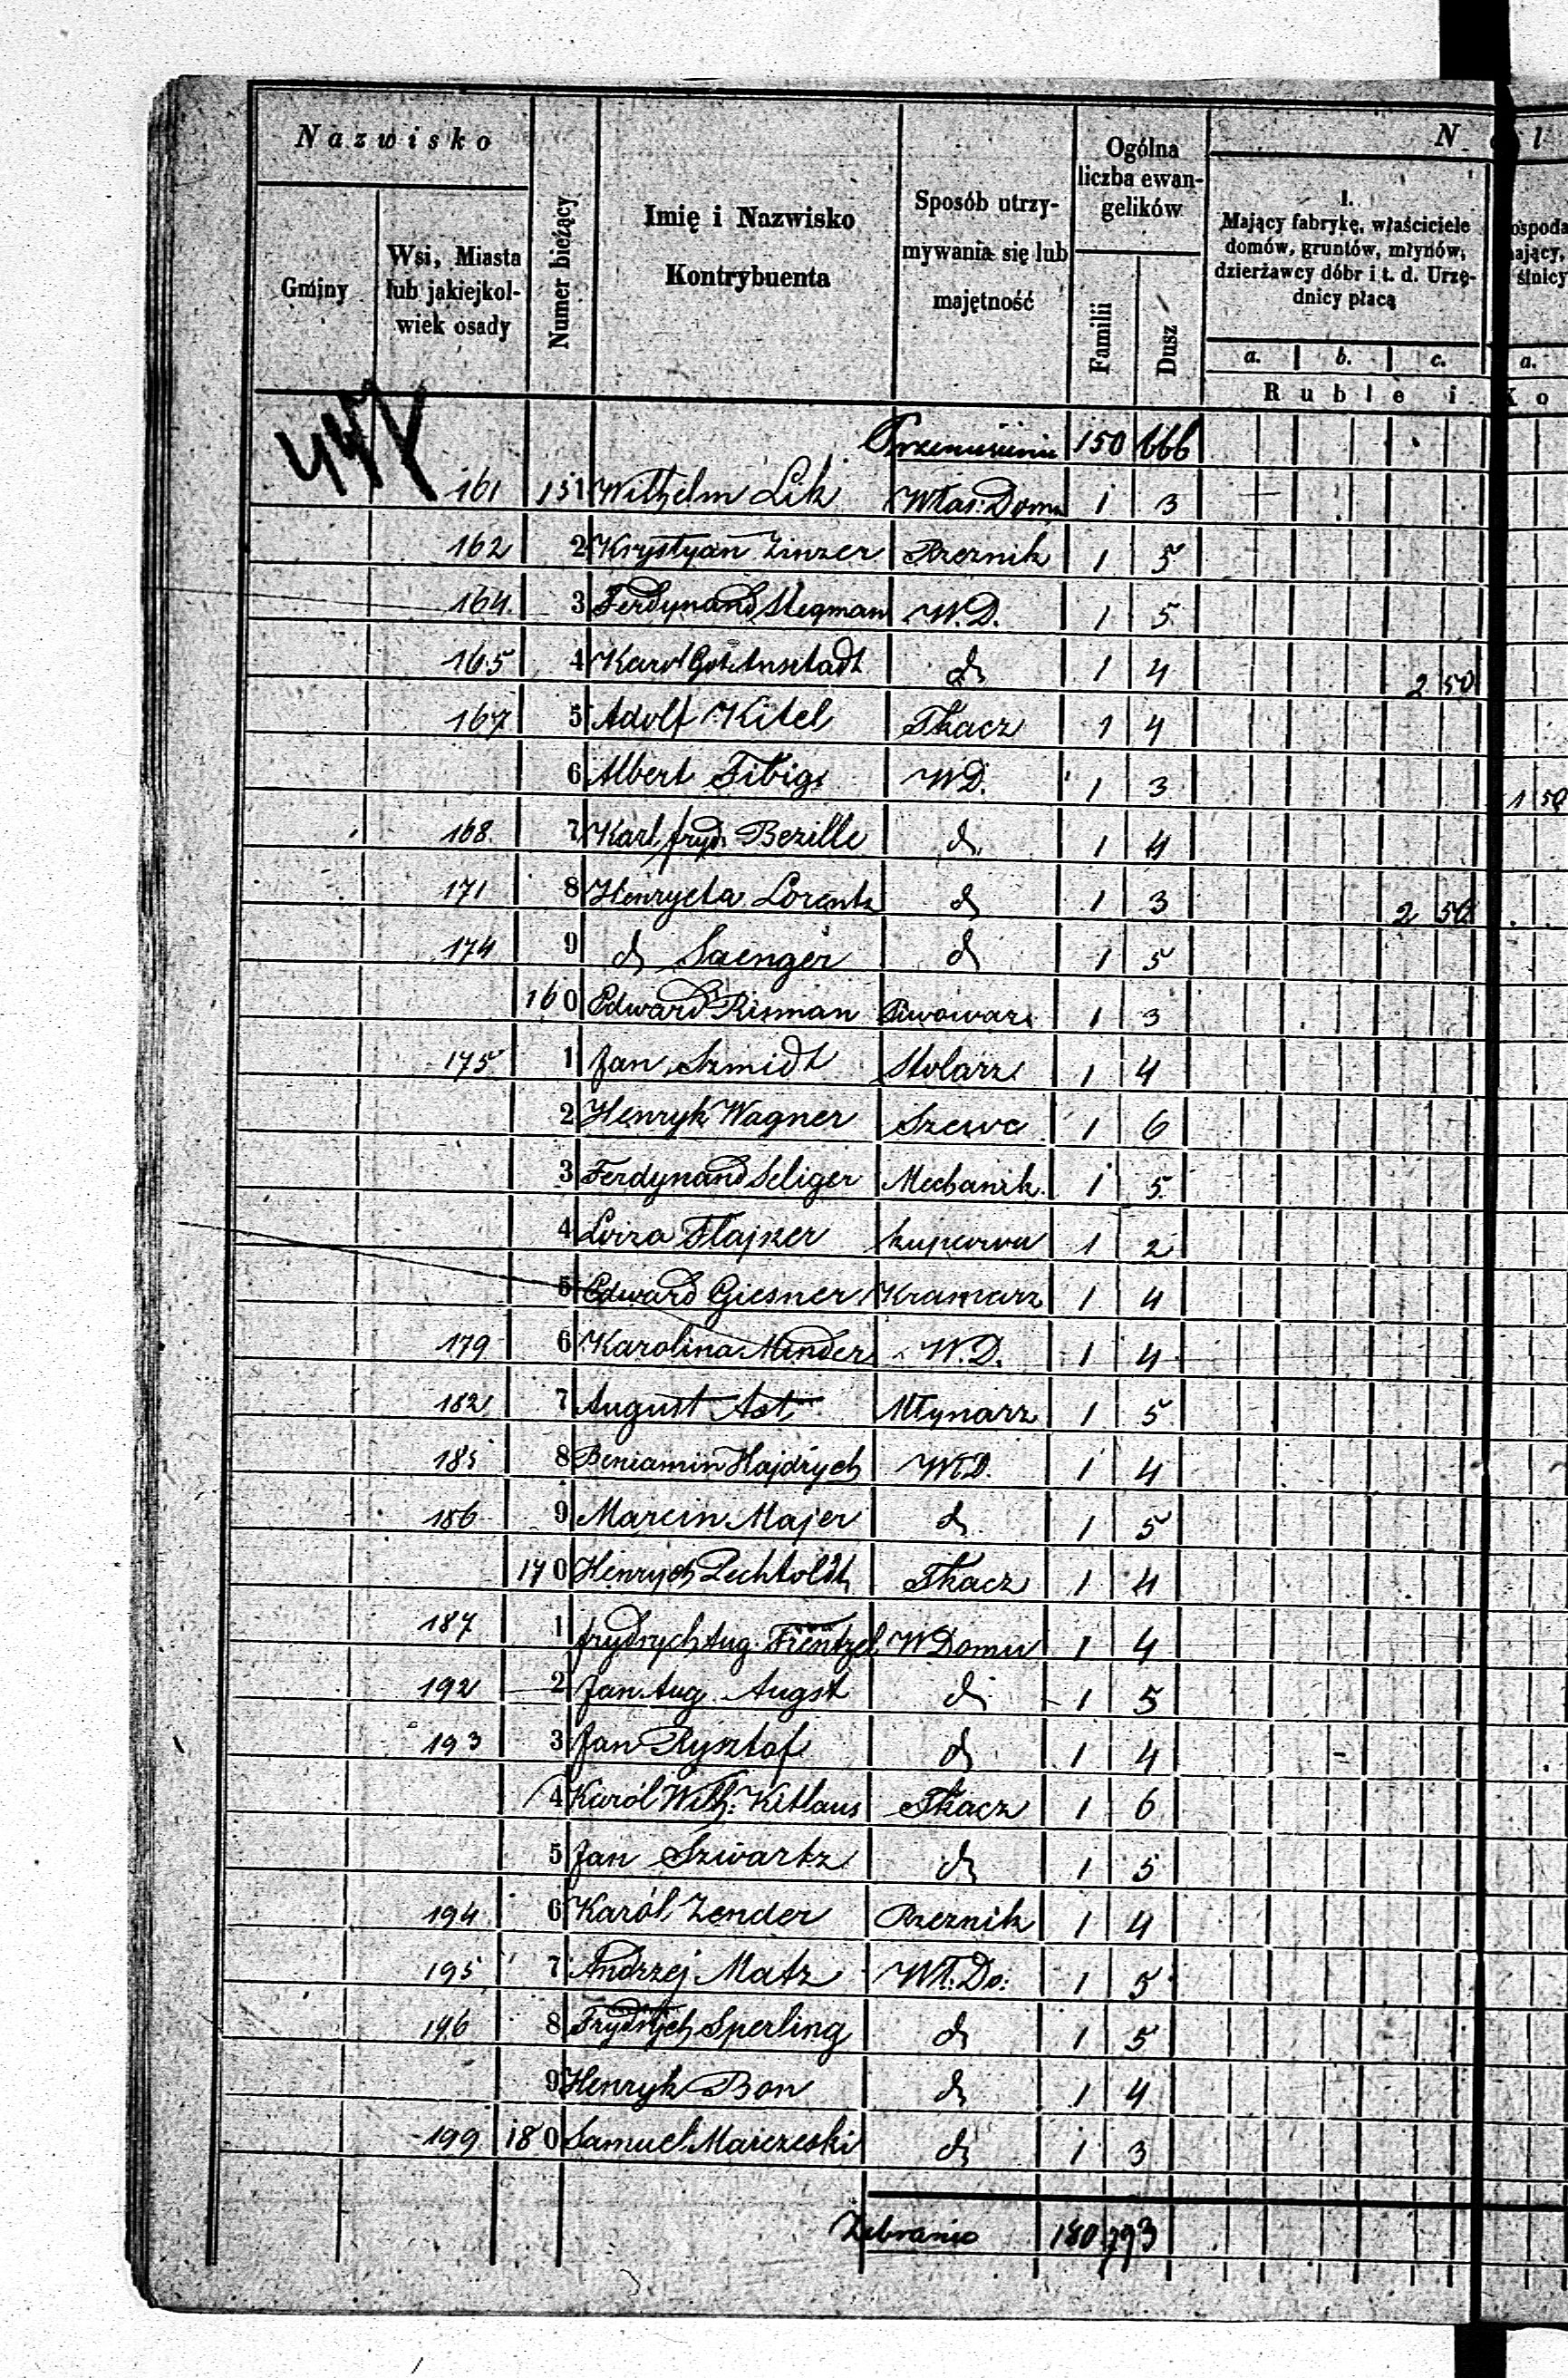 Nazwisko
Gminy
Wsi, Miasta
lub jakiejkol-
wiek osady
Numer bieżący
Imię i Nazwisko
Kontrybuenta
Sposób utrzy-
mywania się lub
majętność
Ogólna
liczba ewan-
gelików
Familii
Dusz
N l
I.
Mający fabrykę, właściciele
domów, gruntów, młynów,
dzierżawcy dóbr i t. d. Urzę-
dnicy płacą
a. b. c.
Ruble i Ko
ospoda
ający,
ślnicy
a.
447
Przeniesienie 150 666
161 151 Wilhelm Lik Właś: Domu 1 3
162 2 Krystyan Zinzer Rzeznik 1 5
164 3 Ferdynand Stegman W.D. 1 5
165 4 Karol Got. Anstadt d 1 4 2 50
167 5 Adolf Kitel Tkacz 1 4
6 Albert Fibig WD. 1 3 1 50
168 7 Karl fryd. Bezille d 1 4
171 8 Henryeta Lorentz d 1 3 2 50
174 9 d Saenger d 1 5
160 Edward Risman Piwowar 1 3
175 1 Jan Szmidt Stolarz 1 4
2 Henryk Wagner Szewc 1 6
3 Ferdynand Seliger Mechanik 1 5
4 Loiza Flajszer 1 2
5 Edward Giesner Kramarz 1 4
179 6 Karolina Minder W.D. 1 4
182 7 August Ast Młynarz 1 5
185 8 Beniamin Hajdrych WłD. 1 4
186 9 Marcin Majer d 1 5
170 Henrych Pechtoldt Tkacz 1 4
187 1 frydrych Aug. Frentzel W Domu 1 4
192 2 Jan Aug. Augst d 1 5
193 3 Jan Rysztof d 1 4
4 Karól Wilh: Kitlaus Tkacz 1 6
5 Jan Szwartz d 1 5
194 6 Karól Zender Rzeznik 1 4
195 7 Andrzej Matz Wł. Do: 1 5
196 8 Frydrych Sperling d 1 5
9 Henryk Bon d 1 4
199 180 Samuel Marczeski d 1 3
Zebranie 180 793